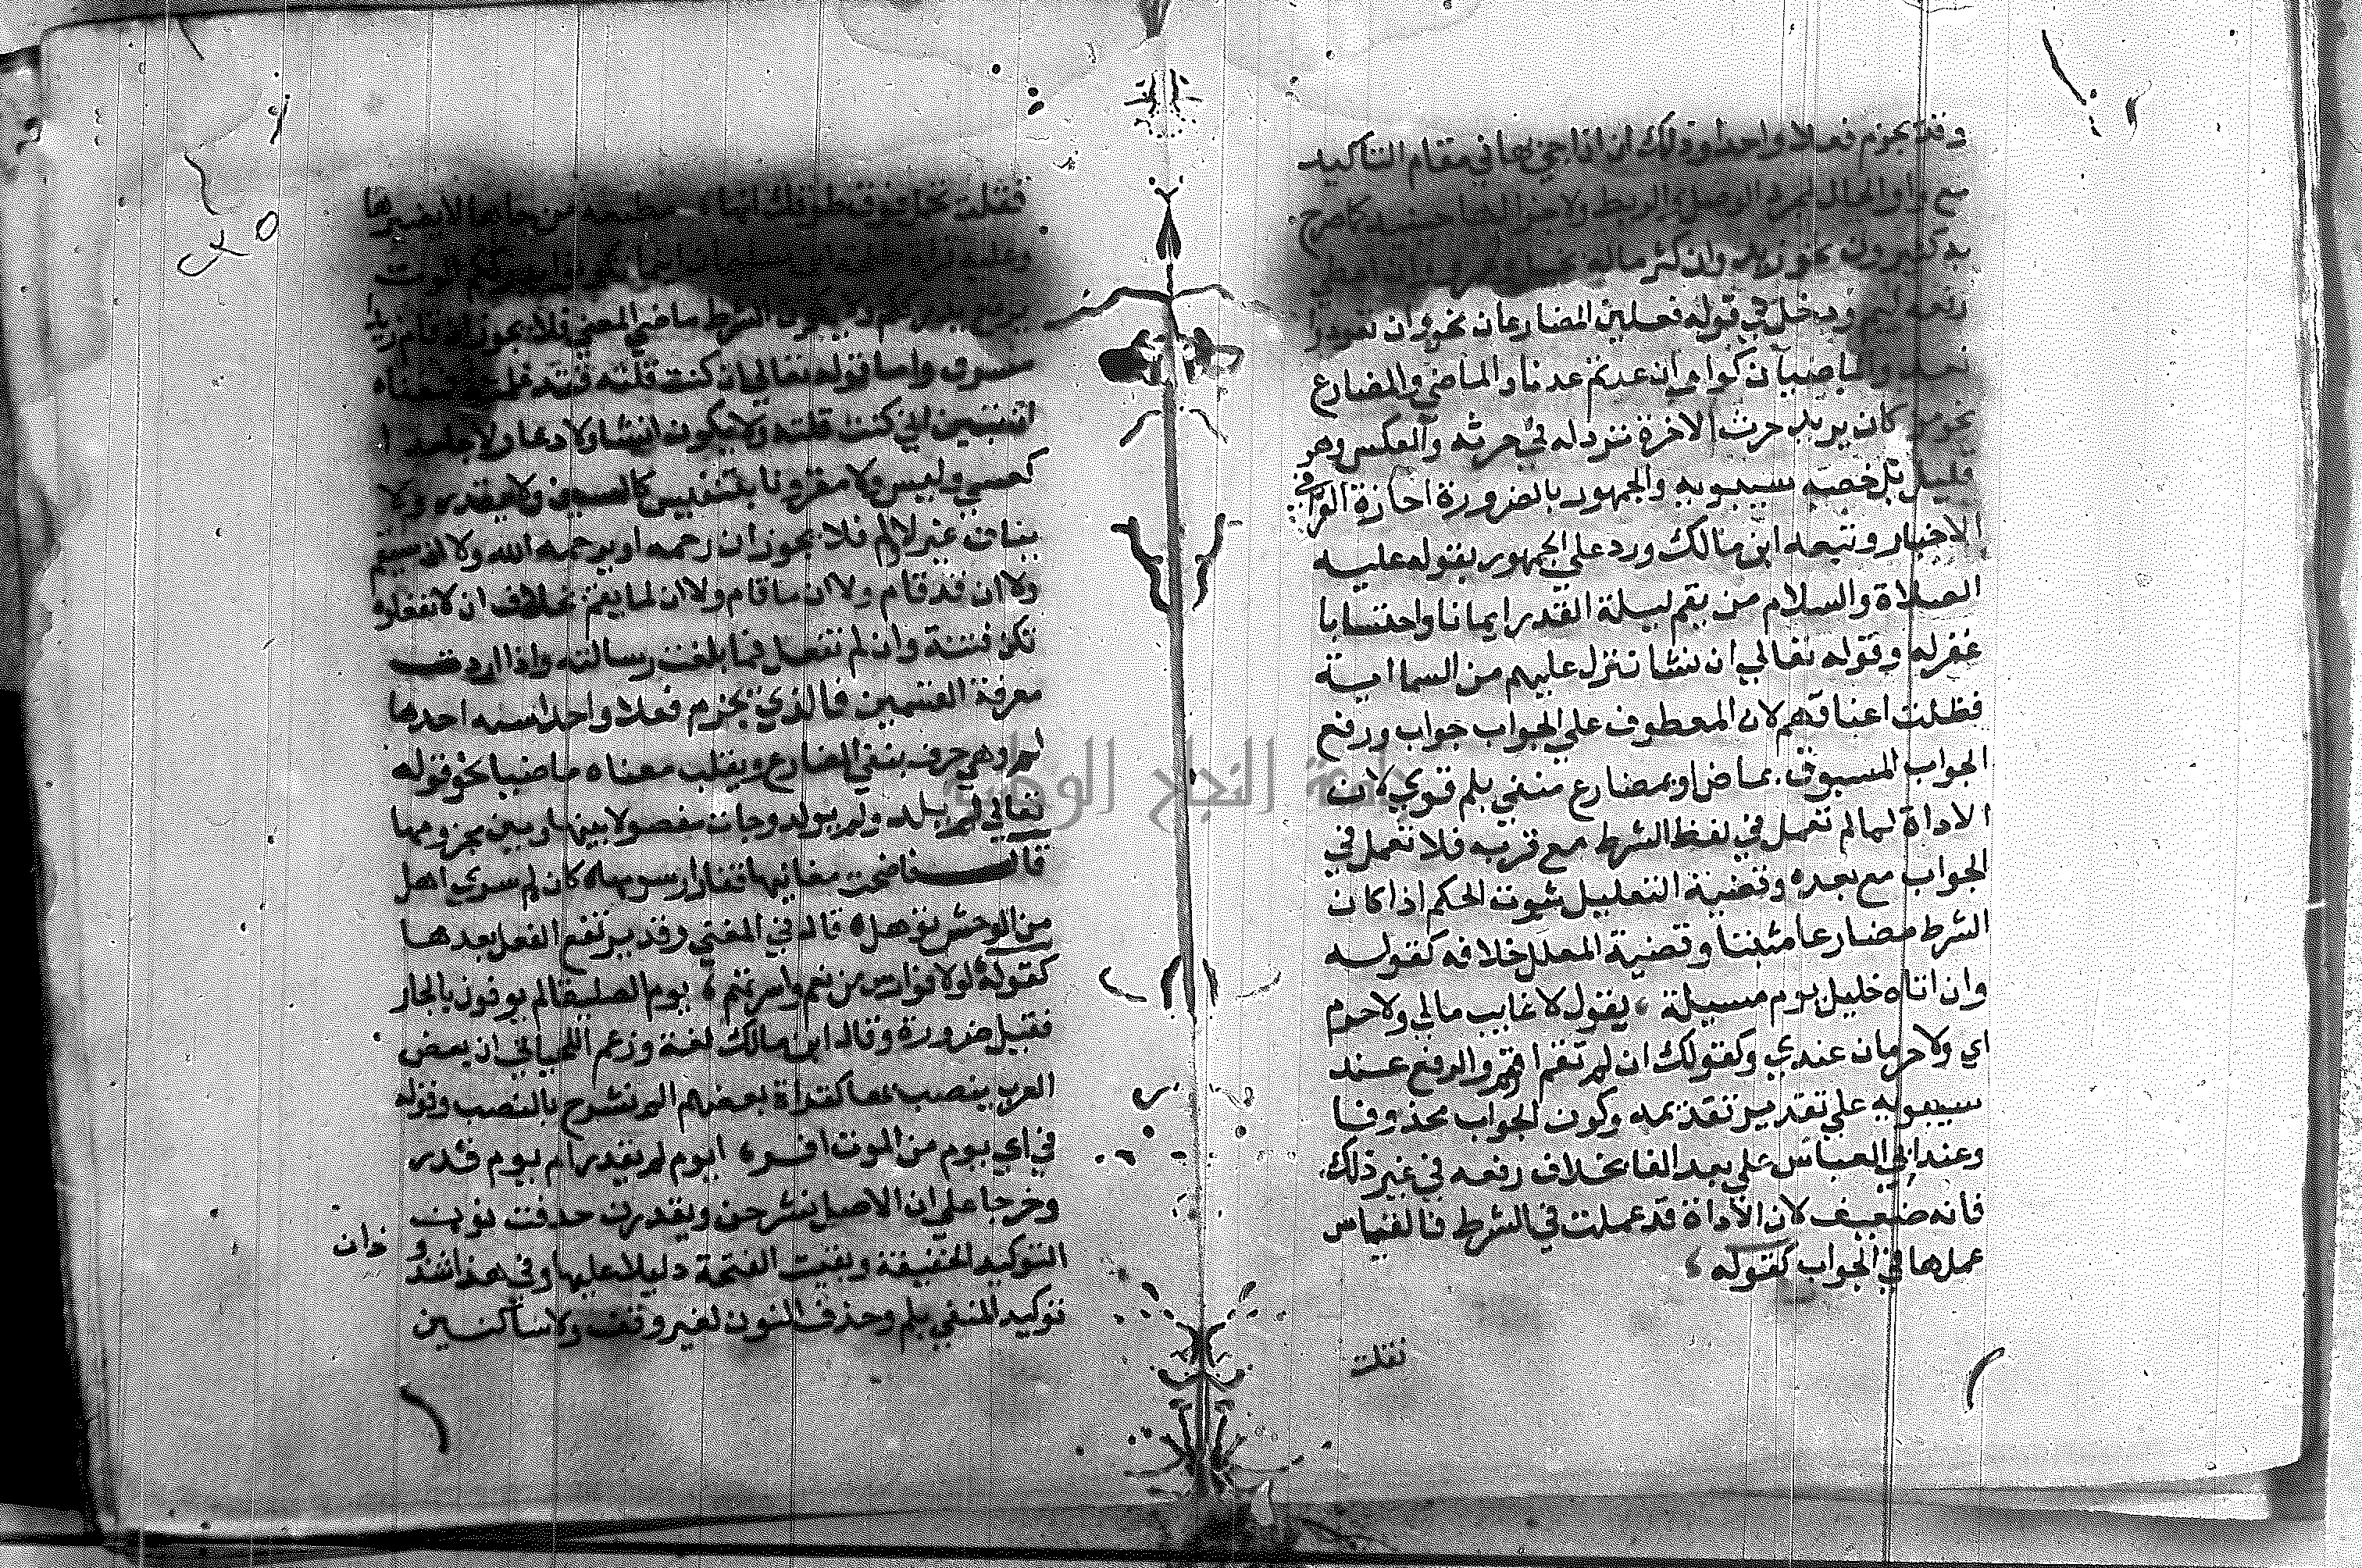 وقد يجزم فعلا واحدا وذلك ان اذا جئ بها في مقام التاكيد
مع واو الحال لمجرد الوصل والربط ولا جزا لها حينيد كما صرح
به كثيرون نحو زيد وان كثر ماله بخيل
ودخل في قوله فعلين المضارعان نحو وان تعودوا
نعد والماضيان نحو وان عدتم عدنا والماضي والمضارع
نحو من كان يريد حرث الاخرة نزد له في حرثه والعكس وهو
قليل بل خصه سيبويه والجمهور بالضرورة اجازة الفرا في
الاخيار وتبعه ابن مالك ورد علي الجمهور بقوله عليه
الصلاة والسلام من يقم ليلة القدر ايمانا واحتسابا
غفر له وقوله تعالي ان نشا ننزل عليهم من السما اية
فظلت اعناقهم لان المعطوف علي الجواب جواب ورفع
الجواب المسبوق بماض او بمضارع منفي بلم قوي لان
الاداة لما لم تعمل في لفظ الشرط مع قربه فلا تعمل في
الجواب مع بعده وقضية التعليل ثبوت الحكم اذا كان
الشرط مضارعا مثبتا وقضية المعلل خلافه كقوله
وان اتاه خليل يوم مسيلة ، يقول لا غايب مالي ولا حرم
اي ولا حرمان عندي وكقولك ان لم تقم اقوم والرفع عند
سيبويه علي تقدير تقديمه وكون الجواب محذوفا
وعند ابي العباس علي بعد الفا بخلاف رفعه في غير ذلك
فانه ضعيف لان الاداة قد عملت في الشرط فالقياس
عملها في الجواب كقوله ،
فقلت
فقلت تحمل فوق طوقك انها ، مطبعة من ياتها لا يضيرها
وعليه قراة طلحة ابن سليمان اينما تكونوا يدرككم الموت
برفع يدرككم ولا يكون الشرط ماضي المعني فلا يجوز ان قام زيد
واما قوله تعالي ان كنت قلته فقد علمته فمعناه
ان يتبين اني كنت قلته ولا يكون انشا ولا دعا ولا جامدا
كعسي وليس ولا مقرونا بتنفيس كالسين ولا بقد ولا
بناف غير لا ولم فلا يجوز ان رحمه او يرحمه الله ولا ان سيقم
ولا ان قد قام ولا ان ما قام ولا ان لما يقم بخلاف ان لا تفعلوه
تكن فتنة وان لم تفعل فما بلغت رسالته واذا اردت
معرفة القسمين فالذي يجزم فعلا واحدا ستة احدها
لم وهي حرف ينفي المضارع ويقلب معناه ماضيا نحو قوله
تعالي لم يلد ولم يولد وجات مفصولا بينها وبين مجزومها
قال فاضحت مغانيها قفارا رسومها كان لم سوي اهل
من الوحش توهل قال في المغني وقد يرتفع الفعل بعدها
كقوله لولا فوارس من نعم واسرتهم ، يوم الصليفا لم يوفون بالجار
فقيل ضرورة وقال ابن مالك لغة وزعم اللحياني ان بعض
العرب ينصب بها كقراة بعضهم الم نشرح بالنصب وقوله
في اي يوم من الموت افر ، ايوم لم يقدر ام يوم قدر
وخرجا علي ان الاصل نشرحن ويقدرن حذفت نون
التوكيد الخفيفة وبقيت الفتحة دليلا عليها وفي هذا شذوذان
توكيد المنفي بلم وحذف النون لغير وقف ولا ساكنين